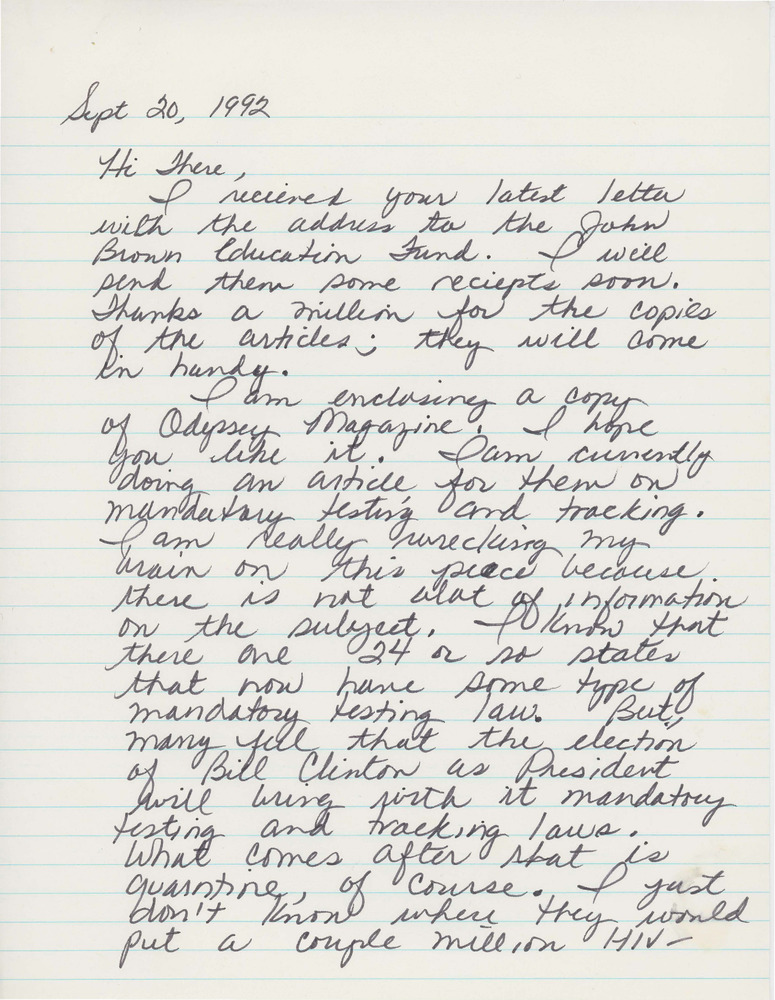 Sept 20, 1992
Hi There,
I recieved your latest letter
with the address to the John
Brown Education Fund. I will
send them some reciepts soon.
Thanks a million for the copies
of the articles; they will come
in handy.
I am enclosing a copy
of Odyssey Magazine. I hope
you like it. I am currently
doing an article for them on
mandatory testing and tracking.
I am really wrecking my
brain on this piece because
there is not alot of information
on the subject. I know that
there are 24 or so states
that now have some type of
mandatory testing law. But,
many feel that the election
of Bill Clinton as President
will bring with it mandatory
testing and tracking laws.
What comes after that is
quarintine, of course. I just
don't know where they would
put a couple million HIV-